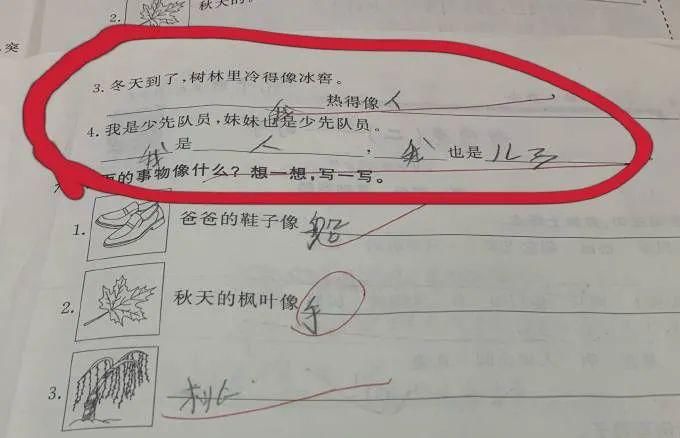 2.
秋天的
突
3. 冬天到了,树林里冷得像冰窖。
我 热得像人
4. 我是少先队员,妹妹也是少先队员。
我是人,我也是儿子
的事物像什么?想一想,写一写。
1. 爸爸的鞋子像船
2. 秋天的枫叶像手
3.